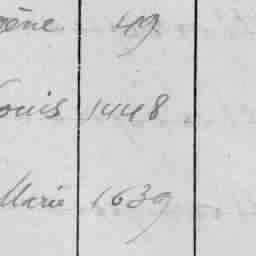 gène 49
ouis 1448
Marie 1639